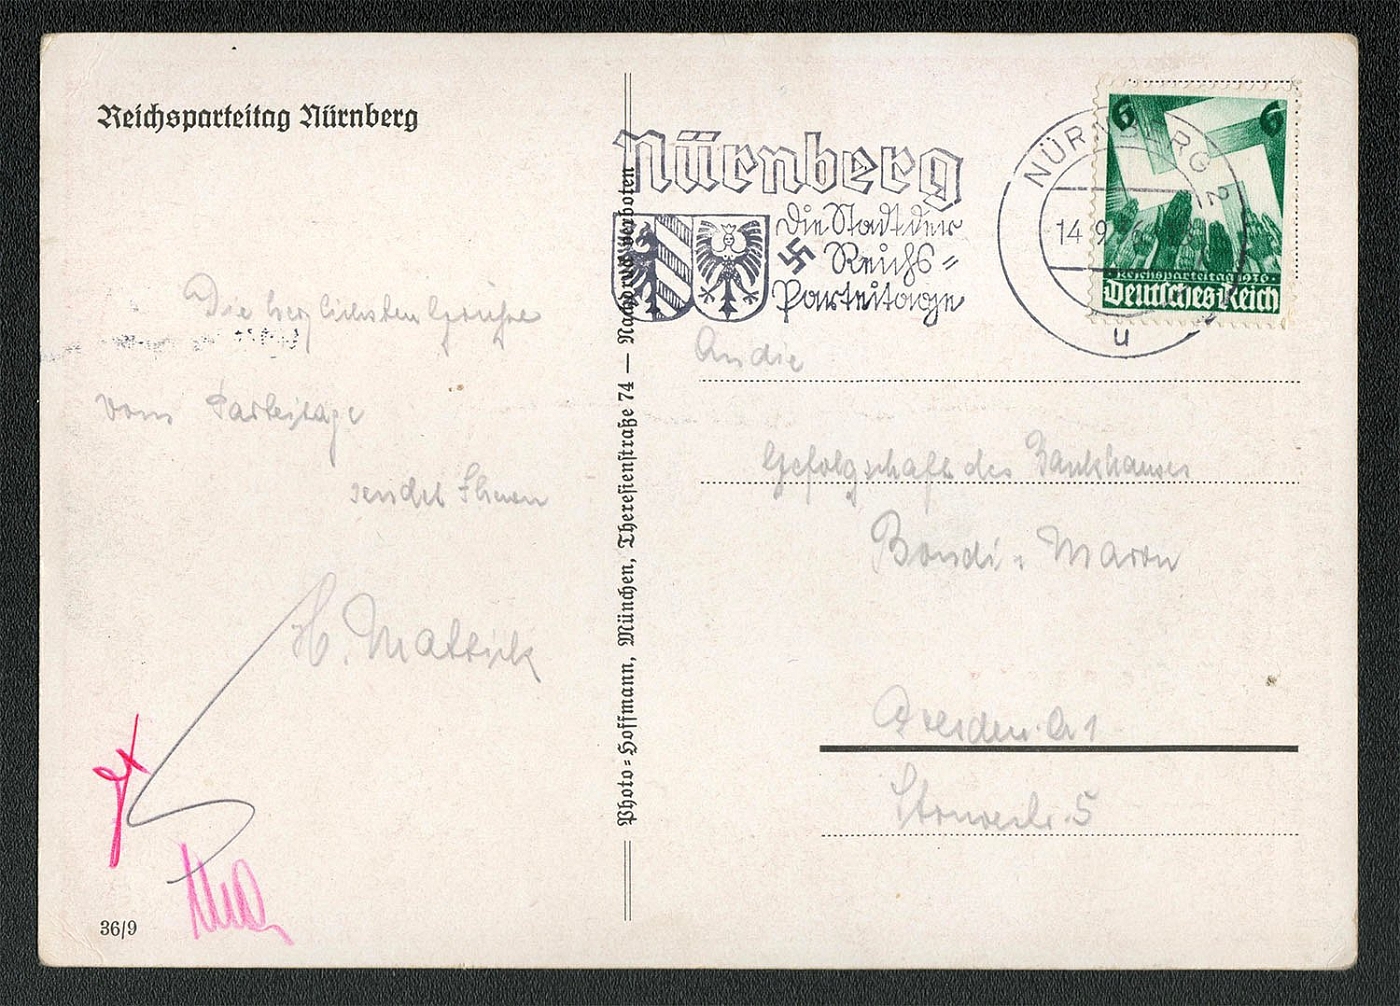 Reichsparteitag Nürnberg
Die herzlichsten Grüße
vom Parteitage
sendet Ihnen
H. Mattick
36/9
Photo-Hoffmann, München, Theresienstraße 74 — Nachdruck verboten
Nürnberg
Die Stadt der
Reichs-
Parteitage
NÜRNBERG 2
14.9.
u
6 6
Reichsparteitag 1936
Deutsches Reich
An die
Gefolgschaft des Bankhauses
Bondi & Maron
Dresden A 1